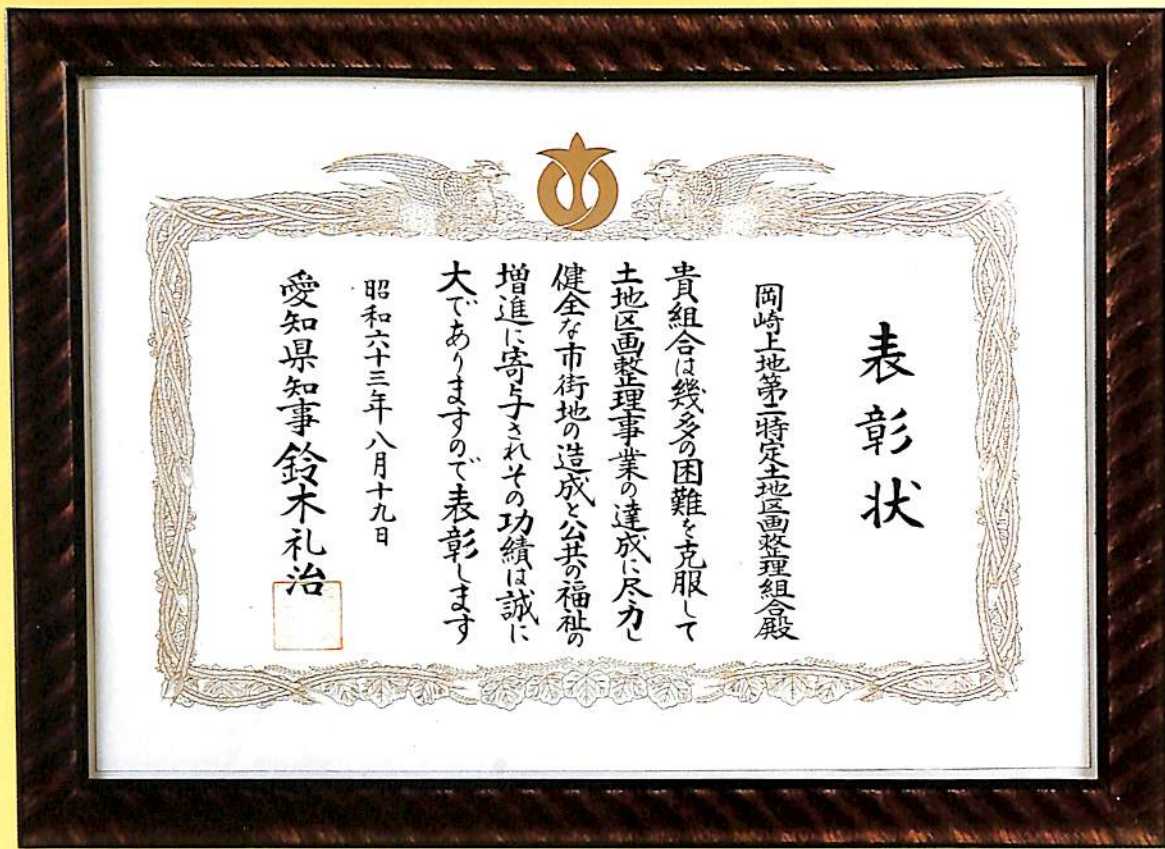 表彰状
岡崎上地第二特定土地区画整理組合殿
貴組合は幾多の困難を克服して
土地区画整理事業の達成に尽力し
健全な市街地の造成と公共の福祉の
増進に寄与されその功績は誠に
大でありますので表彰します
昭和六十三年八月十九日
愛知県知事鈴木礼治